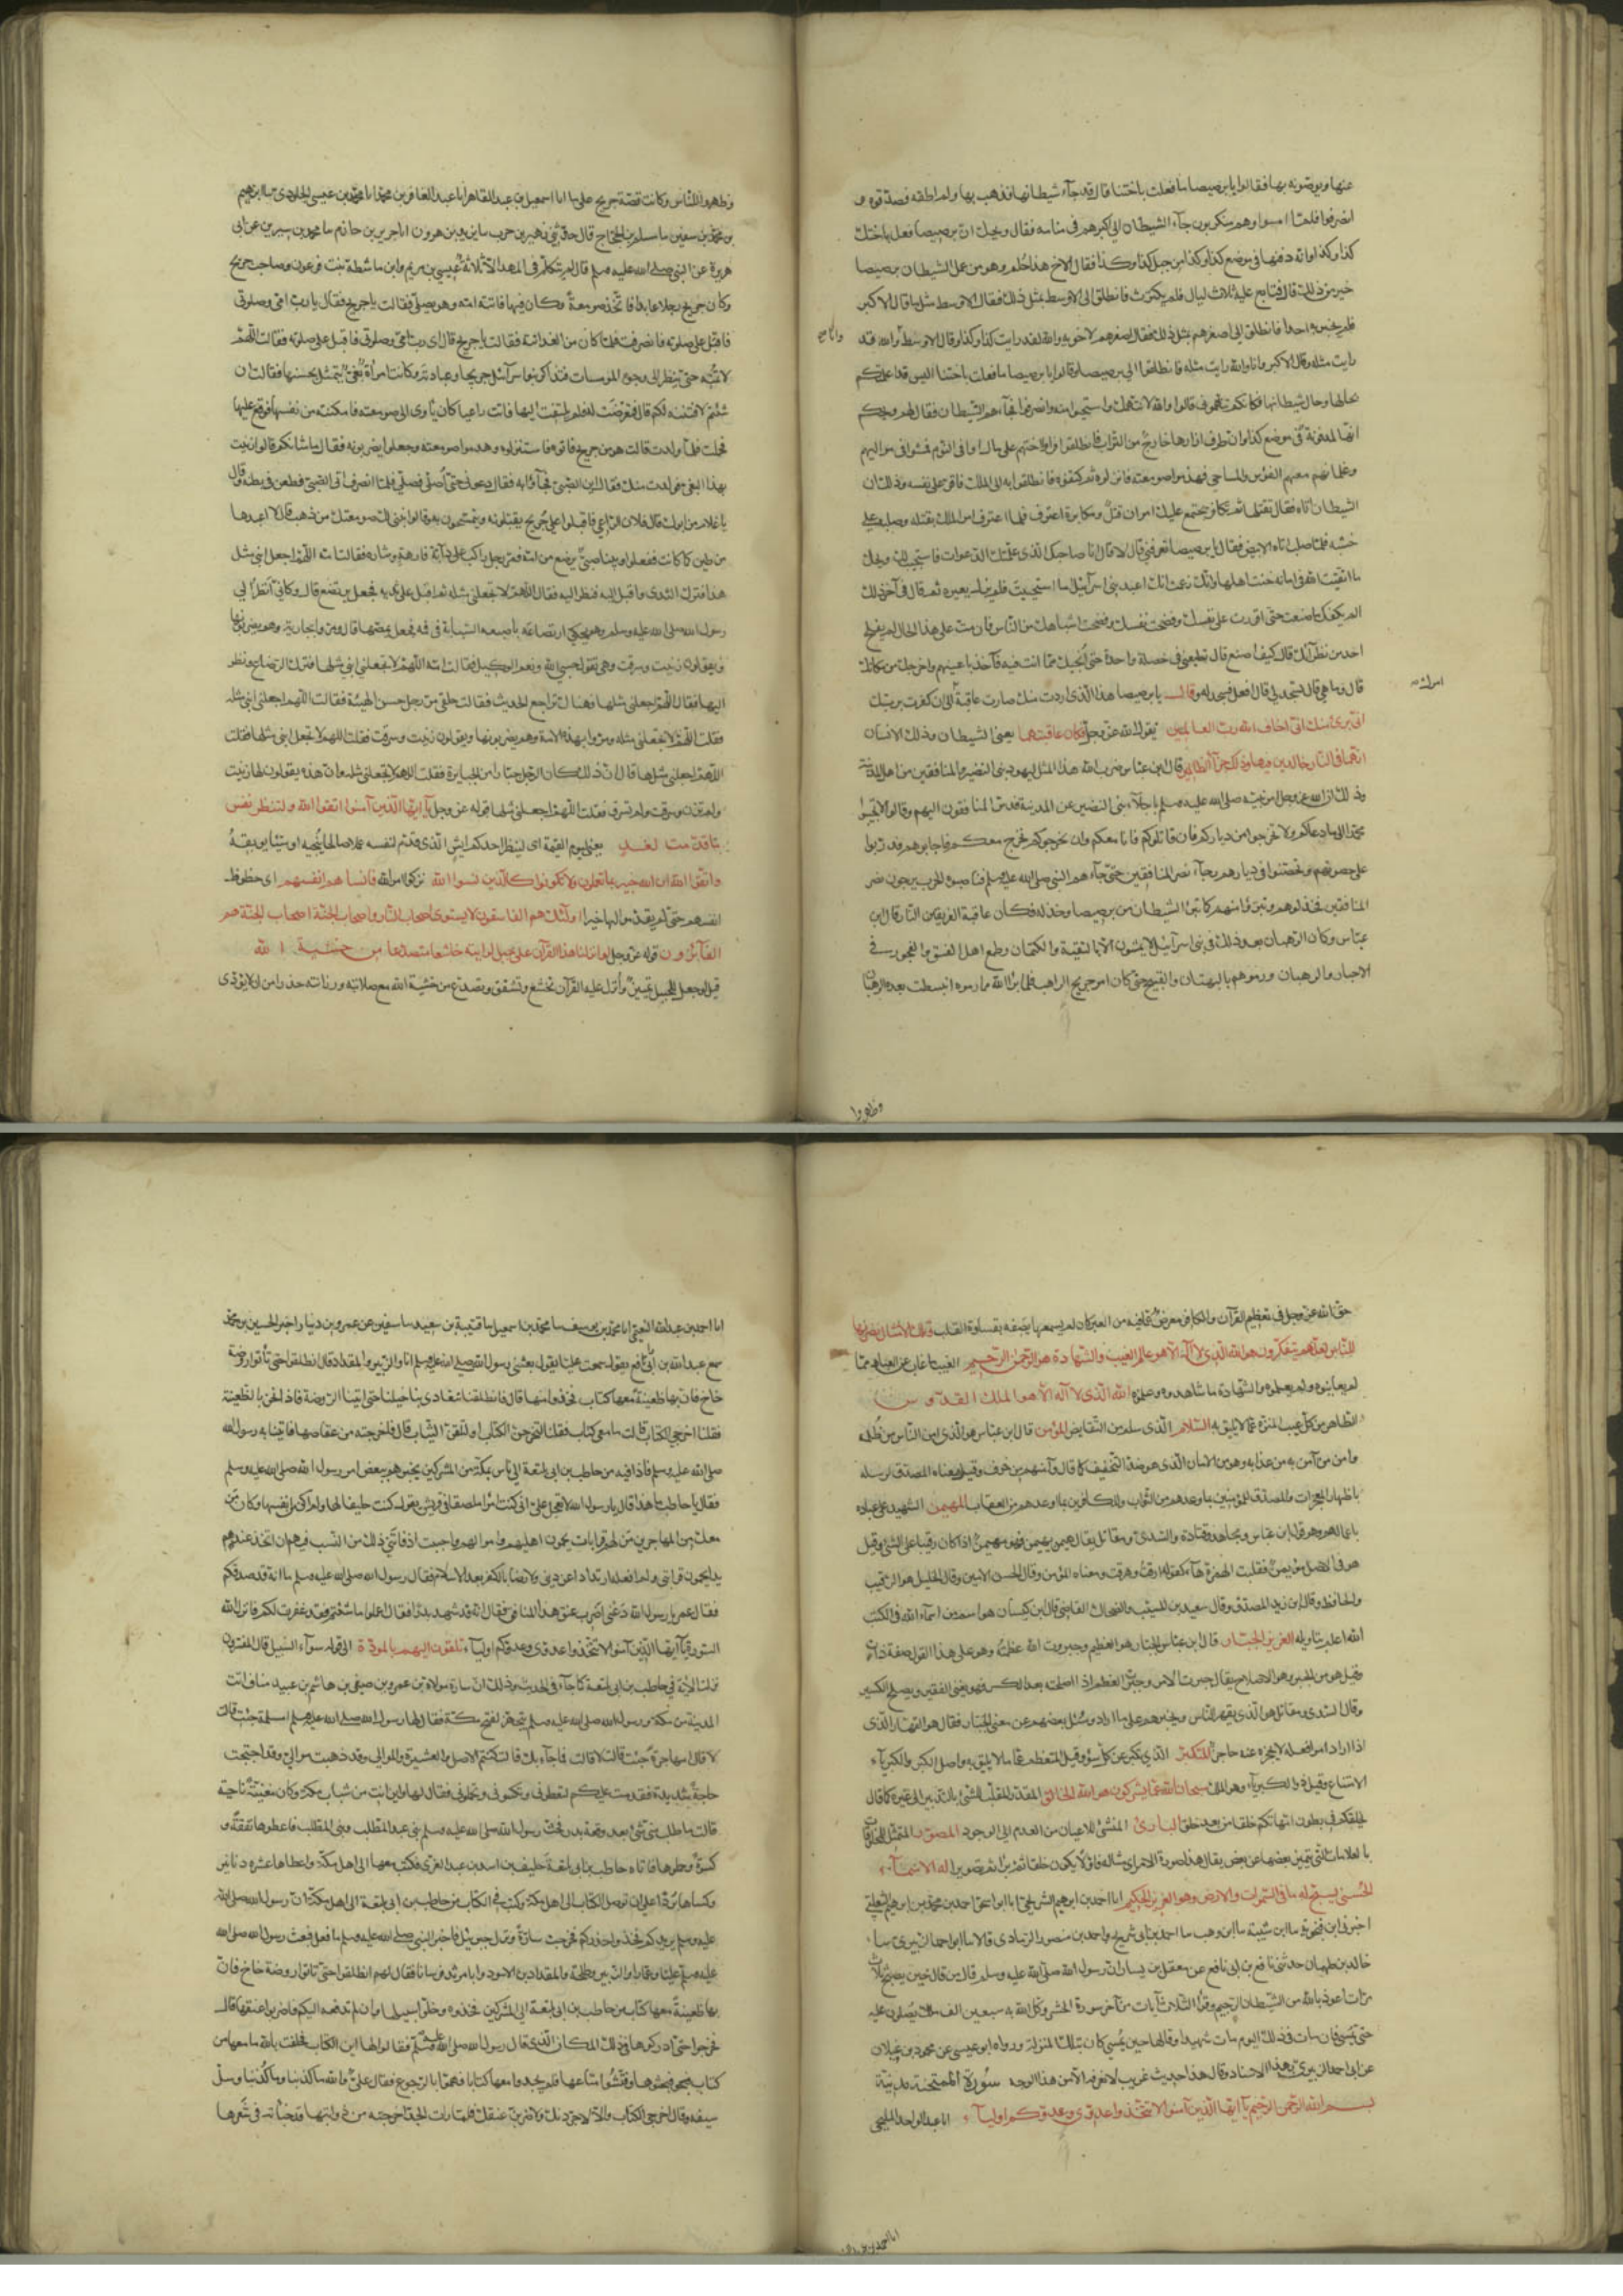 عنها ويوصونه بها فقالوا يا برصيصا ما فعلت باختنا قال قد جاء شيطانها فذهب بها ولم اطقه فصدقوه و
انصرفوا فلما امسوا وهم مكروبون جاء الشيطان الى اكبرهم في منامه فقال ويحك ان برصيصا فعل باختك
كذا وكذا وانه دفنها في موضع كذا وكذا من جبل كذا وكذا فقال الاخ هذا حلم وهو من عمل الشيطان برصيصا
خير من ذلك قال فتابع عليه ثلاث ليال فلم يكترث فانطلق الى الاوسط بمثل ذلك فقال الاوسط مثل ما قال الاكبر
فلم يخبر به احدا فانطلق الى اصغرهم بمثل ذلك فقال اصغرهم لاخويه والله لقد رايت كذا وكذا وقال الاوسط وانا والله قد
رايت مثله وقال الاكبر وانا والله رايت مثله فانطلقوا الى برصيصا وقالوا يا برصيصا ما فعلت باختنا اليس قد اعلمتكم
بحالها وحال شيطانها فكانكم تتهموني قالوا والله لا نتهمك واستحيوا منه وانصرفوا فجاءهم الشيطان فقال لهم ويحكم
انها لمدفونة في موضع كذا وان طرف ازارها خارج من التراب فانطلقوا فراوا اختهم على ما راوا في النوم فمشوا في مواليهم
وغلمانهم معهم الفوس والمساحي فهدموا صومعته فانزلوه ثم كتفوه فانطلقوا به الى الملك فاقر على نفسه وذلك ان
الشيطان اتاه فقال تقتلها ثم تكابر يجتمع عليك امران قتل ومكابرة اعترف فلما اعترف امر الملك بقتله وصلبه على
خشبه فلما صلب اتاه الابيض فقال يا برصيصا تعرفني قال لا قال انا صاحبك الذي علمتك الدعوات فاستجيب لك ويحك
ما اتقيت الله في امانه خنت اهلها وانك زعمت انك اعبد بني اسرائيل ما استحييت فلم يزل يعيره ثم قال في آخر ذلك
الم يكفك ما صنعت حتى اقررت على نفسك وفضحت نفسك وفضحت اشباهك من الناس فان مت على هذا الحال لم يفلح
احد من نظرائك قال كيف اصنع قال تطيعني في خصلة واحدة حتى انجيك مما انت فيه فآخذ باعينهم واخرجك من مكانك
قال وما هي قال تسجد لي قال افعل فسجد له وقال يا برصيصا هذا الذي اردت منك صارت عاقبة الى ان كفرت بربك
اني بريء منك اني اخاف الله رب العالمين يقول الله عز وجل فكان عاقبتهما يعني الشيطان وذلك الانسان
انهما في النار خالدين فيها وذلك جزاء الظالمين قال ابن عباس ضرب الله هذا المثل ليهود بني النضير والمنافقين من اهل المدينة
وذلك ان الله عز وجل امر نبيه صلى الله عليه وسلم باجلاء بني النضير عن المدينة فدس المنافقون اليهم وقالوا لا تجيبوا
محمدا الى ما دعاكم ولا تخرجوا من دياركم فان قاتلوكم فانا معكم وان اخرجوكم نخرج معكم فاجابوهم ودربوا
على حصونهم وتحصنوا في ديارهم رجاء نصر المنافقين حتى جاءهم النبي صلى الله عليه وسلم فناصبوه الحرب يرجون نصر
المنافقين فخذلوهم وتبرؤا منهم كما تبرا الشيطان من برصيصا وخذله فكان عاقبة الفريقين النار قال ابن
عباس وكان الرهبان بعد ذلك في بني اسرائيل لا يمشون الا بالتقية والكتمان وطمع اهل الفسق والفجور في
الاحبار والرهبان ورموهم بالبهتان والقبيح حتى كان امر جريج الراهب فلما برا الله ما رموه انبسطت بعده الرهبان
وظهروا
وظهروا للناس وكانت قصة جريج على ما انا اسمعيل بن عبد القاهر انا عبد الغافر بن محمد انا محمد بن عيسى الجلودي سا ابرهيم
بن محمد بن سفين سا مسلم بن الحجاج قال حدثني زهير بن حرب سا يزيد بن هرون انا جرير بن حازم سا محمد بن سيرين عن ابي
هريرة عن النبي صلى الله عليه وسلم قال لم يتكلم في المهد الا ثلاثة عيسى بن مريم وابن ماشطة بنت فرعون وصاحب جريج
وكان جريج رجلا عابدا فاتخذ صومعة وكان فيها فاتته امه وهو يصلي فقالت يا جريج فقال يا رب امي وصلوتي
فاقبل على صلوته فانصرفت فلما كان من الغد اتته فقالت يا جريج قال اي رب امي وصلوتي فاقبل على صلوته فقالت اللهم
لا تمته حتى ينظر الى وجوه المومسات فتذاكر بنوا سرائيل جريجا وعبادته وكانت امراة بغي يتمثل بحسنها فقالت ان
شئتم لافتننه لكم قال فتعرضت له فلم يلتفت اليها فاتت راعيا كان ياوي الى صومعته فامكنته من نفسها فوقع عليها
فحملت فلما ولدت قالت هو من جريج فاتوه فاستنزلوه وهدموا صومعته وجعلوا يضربونه فقال ما شانكم قالوا زنيت
بهذا البغي فولدت منك فقال اين الصبي فجاؤا به فقال دعوني حتى اصلي فصلى فلما انصرف اتى الصبي فطعن في بطنه وقال
يا غلام من ابوك قال فلان الراعي فاقبلوا على جريج يقبلونه ويتمسحون به وقالوا نبني لك صومعتك من ذهب قال لا اعيدوها
من طين كما كانت ففعلوا وبينا صبي يرضع من امه فمر رجل راكب على دابة فارهة وشارة فقالت امه اللهم اجعل ابني مثل
هذا فترك الثدي واقبل اليه فنظر اليه فقال اللهم لا تجعلني مثله ثم اقبل على ثديه فجعل يرتضع قال وكاني انظر الى
رسول الله صلى الله عليه وسلم وهو يحكي ارتضاعه باصبعه السبابة في فمه فجعل يمصها قال ومر وا بجارية وهم يضربونها
ويقولون زنيت وسرقت وهي تقول حسبي الله ونعم الوكيل فقالت امه اللهم لا تجعل ابني مثلها فترك الرضاع ونظر
اليها فقال اللهم اجعلني مثلها فهناك تراجع الحديث فقالت حلقى مر رجل حسن الهيئة فقالت اللهم اجعل ابني مثله
فقلت اللهم لا تجعلني مثله ومروا بهذه الامة وهم يضربونها ويقولون زنيت وسرقت فقلت اللهم لا تجعل ابني مثلها فقلت
اللهم اجعلني مثلها قال ان ذلك كان الرجل جبارا من الجبابرة فقلت اللهم لا تجعلني مثله وان هذه يقولون لها زنيت
ولم تزن وسرقت ولم تسرق فقلت اللهم اجعلني مثلها قوله عز وجل يا ايها الذين آمنوا اتقوا الله ولتنظر نفس
ما قدمت لغد يعني ليوم القيمة اي لينظر احدكم ايش الذي قدم لنفسه عملا صالحا ينجيه او سيئا يوبقه
واتقوا الله ان الله خبير بما تعملون ولا تكونوا كالذين نسوا الله تركوا امر الله فانساهم انفسهم اي حظوظ
انفسهم حتى لم يقدموا لها خيرا اولئك هم الفاسقون لا يستوي اصحاب النار واصحاب الجنة اصحاب الجنة هم
الفائزون قوله عز وجل لو انزلنا هذا القرآن على جبل لرايته خاشعا متصدعا من خشية الله
قيل لو جعل للجبل تمييز وانزل عليه القرآن لخشع وتشقق وتصدع من خشية الله مع صلابته ورزانته حذرا من ان لا يؤدي
حق الله عز وجل في تعظيم القرآن والكافر معرض عما فيه من العبر كان لم يسمعها يصفه بقساوة القلب وتلك الامثال نضربها
للناس لعلهم يتفكرون هو الله الذي لا اله الا هو عالم الغيب والشهادة هو الرحمن الرحيم الغيب ما غاب عن العباد مما
لم يعاينوه ولم يعلموه والشهادة ما شاهدوه وعلموه الله الذي لا اله الا هو الملك القدوس
الطاهر من كل عيب المنزه عما لا يليق به السلام الذي سلم من النقايض المؤمن قال ابن عباس هو الذي امن الناس من ظلمه
وامن من آمن به من عذابه وهو من الامان الذي هو ضد التخفيف كما قال وآمنهم من خوف وقيل معناه المصدق لرسله
باظهار المعجزات والمصدق للمؤمنين بما وعدهم من الثواب والكافرين بما اوعدهم من العقاب المهيمن الشهيد على عباده
باعمالهم وهو قول ابن عباس ومجاهد وقتادة والسدي ومقاتل يقال هيمن يهيمن فهو مهيمن اذا كان رقيبا على الشي وقيل
هو في الاصل مؤيمن فقلبت الهمزة هاء كقولهم ارقت وهرقت ومعناه المؤمن وقال الحسن الامين وقال الخليل هو الرقيب
والحافظ وقال ابن زيد المصدق وقال سعيد بن المسيب والضحاك القاضي قال ابن كيسان هو اسم من اسماء الله في الكتب
الله اعلم بتاويله العزيز الجبار قال ابن عباس الجبار هو العظيم وجبروت الله عظمته وهو على هذا القول صفة ذات
وقيل هو من الجبر وهو الاصلاح يقال جبرت الامر وجبرت العظم اذا اصلحته بعد الكسر فهو يغني الفقير ويصلح الكسير
وقال السدي ومقاتل هو الذي يقهر الناس ويجبرهم على ما اراد وسئل بعضهم عن معنى الجبار فقال هو القهار الذي
اذا اراد امرا فعله لا يحجزه عنه حاجز المتكبر الذي تكبر عن كل سوء وقيل المتعظم عما لا يليق به واصل الكبر والكبرياء
الامتناع وقيل ذو الكبرياء وهو الملك سبحان الله عما يشركون هو الله الخالق المقدر والمقلب للشي بالتدبير الى غيره كما قال
يخلقكم في بطون امهاتكم خلقا من بعد خلق البارئ المنشئ للاعيان من العدم الى الوجود المصور الممثل للمخلوقات
بالعلامات التي يتميز بعضها عن بعض يقال هذا صورة الامر اي مثاله فاولا يكون خلقا ثم برا ثم تصويرا له الاسماء
الحسنى يسبح له ما في السموات والارض وهو العزيز الحكيم انا احمد بن ابرهيم الشريحي انا ابو اسحق احمد بن محمد بن ابرهيم الثعلبي
اخبرني ابن فنجويه سا ابن شيبة سا ابن وهب سا احمد بن ابي شريح واحمد بن منصور الرمادي قالا سا ابو احمد الزبيري سا
خالد بن طهمان حدثني نافع بن ابي نافع عن معقل بن يسار ان رسول الله صلى الله عليه وسلم قال من قال حين يصبح ثلاث
مرات اعوذ بالله من الشيطان الرجيم وقرا الثلاث آيات من آخر سورة الحشر وكل الله به سبعين الف ملك يصلون عليه
حتى يمسي فان مات في ذلك اليوم مات شهيدا وقالها حين يمسي كان بتلك المنزلة ورواه ابو عيسى عن محمود بن غيلان
عن ابي احمد الزبيري بهذا الاسناد وقال هذا حديث غريب لا نعرفه الا من هذا الوجه سورة الممتحنة مدنية
بسم الله الرحمن الرحيم يا ايها الذين آمنوا لا تتخذوا عدوي وعدوكم اولياء انا عبد الواحد المليحي
انا احمد بن
انا احمد بن عبد الله النعيمي انا محمد بن يوسف سا محمد بن اسمعيل سا قتيبة بن سعيد سا سفين عن عمرو بن دينار اخبرني الحسن بن محمد
سمع عبد الله بن ابي رافع يقول سمعت عليا يقول بعثني رسول الله صلى الله عليه وسلم انا والزبير والمقداد قال انطلقوا حتى تاتوا روضة
خاخ فان بها ظعينة معها كتاب فخذوه منها قال فانطلقنا تعادى بنا خيلنا حتى اتينا الروضة فاذا نحن بالظعينة
فقلنا اخرجي الكتاب قالت ما معي كتاب فقلنا لتخرجن الكتاب او لتلقين الثياب قال فاخرجته من عقاصها فاتينا به رسول الله
صلى الله عليه وسلم فاذا فيه من حاطب بن ابي بلتعة الى ناس بمكة من المشركين يخبرهم ببعض امر رسول الله صلى الله عليه وسلم
فقال يا حاطب ما هذا قال يا رسول الله لا تعجل علي اني كنت امرا ملصقا في قريش يقول كنت حليفا لها ولم اكن من انفسها وكان من
معك من المهاجرين من لهم قرابات يحمون اهليهم واموالهم واحببت اذ فاتني ذلك من النسب فيهم ان اتخذ عندهم
يدا يحمون قرابتي ولم افعله ارتدادا عن ديني ولا رضا بالكفر بعد الاسلام فقال رسول الله صلى الله عليه وسلم اما انه قد صدقكم
فقال عمر يا رسول الله دعني اضرب عنق هذا المنافق فقال انه قد شهد بدرا فقال اعملوا ما شئتم فقد غفرت لكم فانزل الله
السورة يا ايها الذين آمنوا لا تتخذوا عدوي وعدوكم اولياء تلقون اليهم بالمودة الى قوله سواء السبيل قال المفسرون
نزلت الآية في حاطب بن ابي بلتعة كما جاء في الحديث وذلك ان سارة مولاة بن عمرو بن صيفي بن هاشم بن عبد مناف اتت
المدينة من مكة ورسول الله صلى الله عليه وسلم يتجهز لفتح مكة فقال لها رسول الله صلى الله عليه وسلم امسلمة جئت قالت
لا قال امهاجرة جئت قالت لا قالت فما جاء بك قالت كنتم الاصل والعشيرة والموالي وقد ذهبت موالي وقد احتجت
حاجة شديدة فقدمت عليكم لتعطوني وتكسوني وتحملوني فقال لها واين انت من شباب مكة وكانت مغنية نائحة
قالت ما طلب مني شي بعد وقعة بدر فحث رسول الله صلى الله عليه وسلم بني عبد المطلب وبني المطلب فاعطوها نفقة و
كسوة وحملوها فاتاه حاطب بن ابي بلتعة حليف بن اسد بن عبد العزى فكتب معها الى اهل مكة واعطاها عشرة دنانير
وكساها بردا على ان توصل الكتاب الى اهل مكة وكتب في الكتاب من حاطب بن ابي بلتعة الى اهل مكة ان رسول الله صلى الله
عليه وسلم يريدكم فخذوا حذركم فخرجت سارة ونزل جبرئيل فاخبر النبي صلى الله عليه وسلم ما فعل فبعث رسول الله صلى الله
عليه وسلم عليا وعمارا والزبير وطلحة والمقداد بن الاسود وابا مرثد فرسانا فقال لهم انطلقوا حتى تاتوا روضة خاخ فان
بها ظعينة معها كتاب من حاطب بن ابي بلتعة الى المشركين فخذوه وخلوا سبيلها وان لم تدفعه اليكم فاضربوا عنقها قال
فخرجوا حتى ادركوها في ذلك المكان الذي قال رسول الله صلى الله عليه وسلم فقالوا لها اين الكتاب فحلفت بالله ما معها من
كتاب فبحثوها وفتشوا متاعها فلم يجدوا معها كتابا فهموا بالرجوع فقال علي والله ما كذبنا وما كذبنا وسل
سيفه وقال اخرجي الكتاب والا لاجردنك ولاضربن عنقك فلما رات الجد اخرجته من ذوابتها قد خباته في شعرها